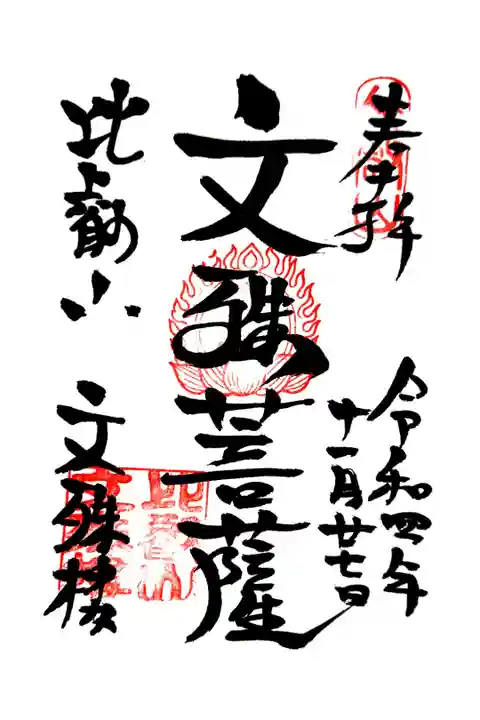 奉拝
令和四年
十一月廿七日
文殊菩薩
比叡山
文殊楼